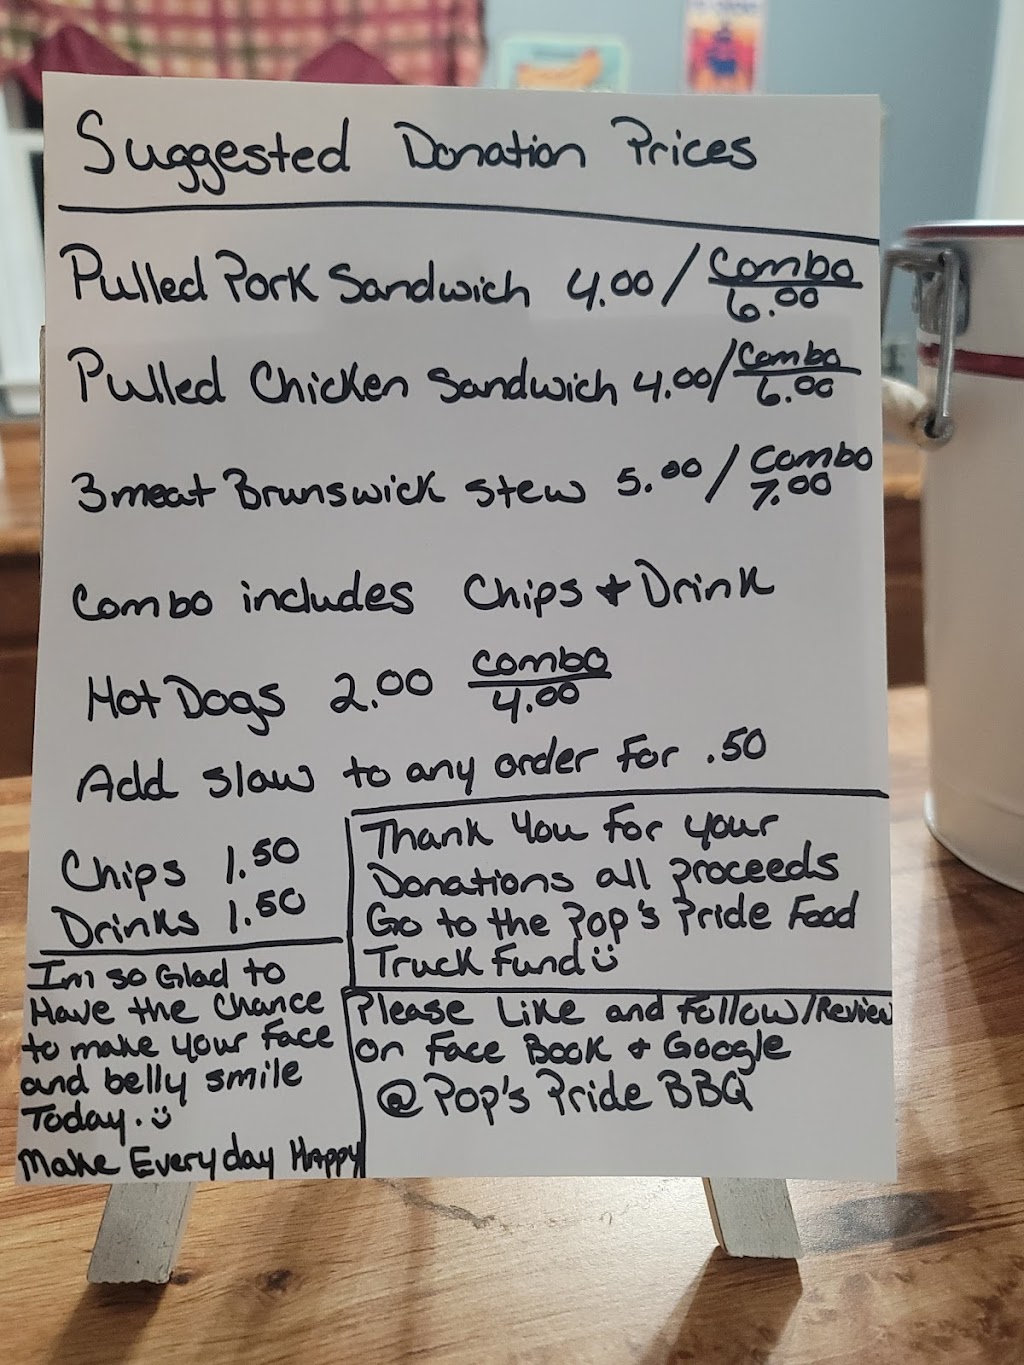 Suggested Donation Prices
Pulled Pork Sandwich 4.00 / Combo 6.00
Pulled Chicken Sandwich 4.00 / Combo 6.00
3 meat Brunswick stew 5.00 / Combo 7.00
Combo includes Chips + Drink
Hot Dogs 2.00 Combo 4.00
Add slaw to any order for .50
Chips 1.50
Drinks 1.50
Thank You for your
Donations all proceeds
Go to the Pop's Pride Food
Truck Fund
I'm so Glad to
Have the Chance
to make your Face
and belly smile
Today.
Make Everyday Happy
Please Like and Follow/Review
on Face Book + Google
@Pop's Pride BBQ